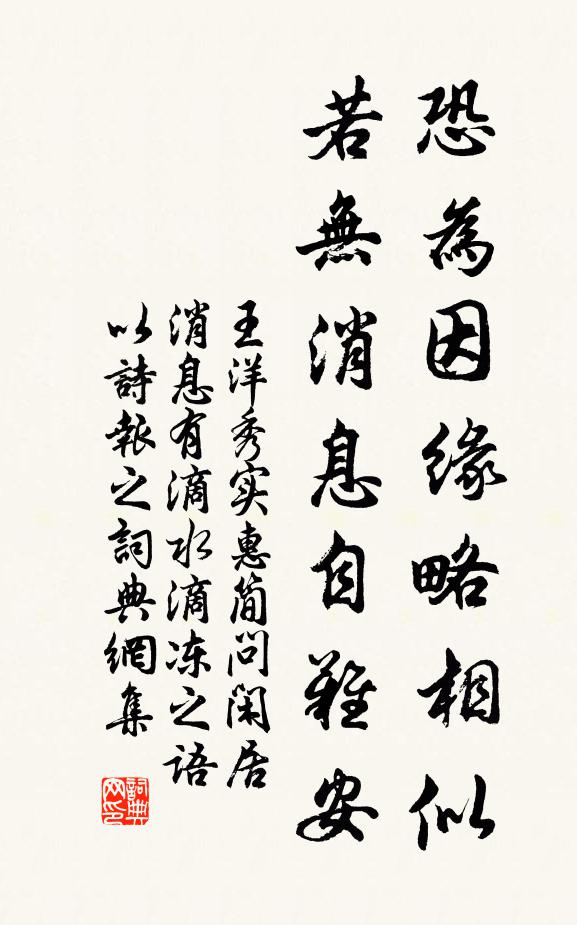 恐為因緣略相似
若無消息自難安
王洋秀实惠简问闲居
消息有滴水滴冻之语
以詩報之詞典網集
詞典网印